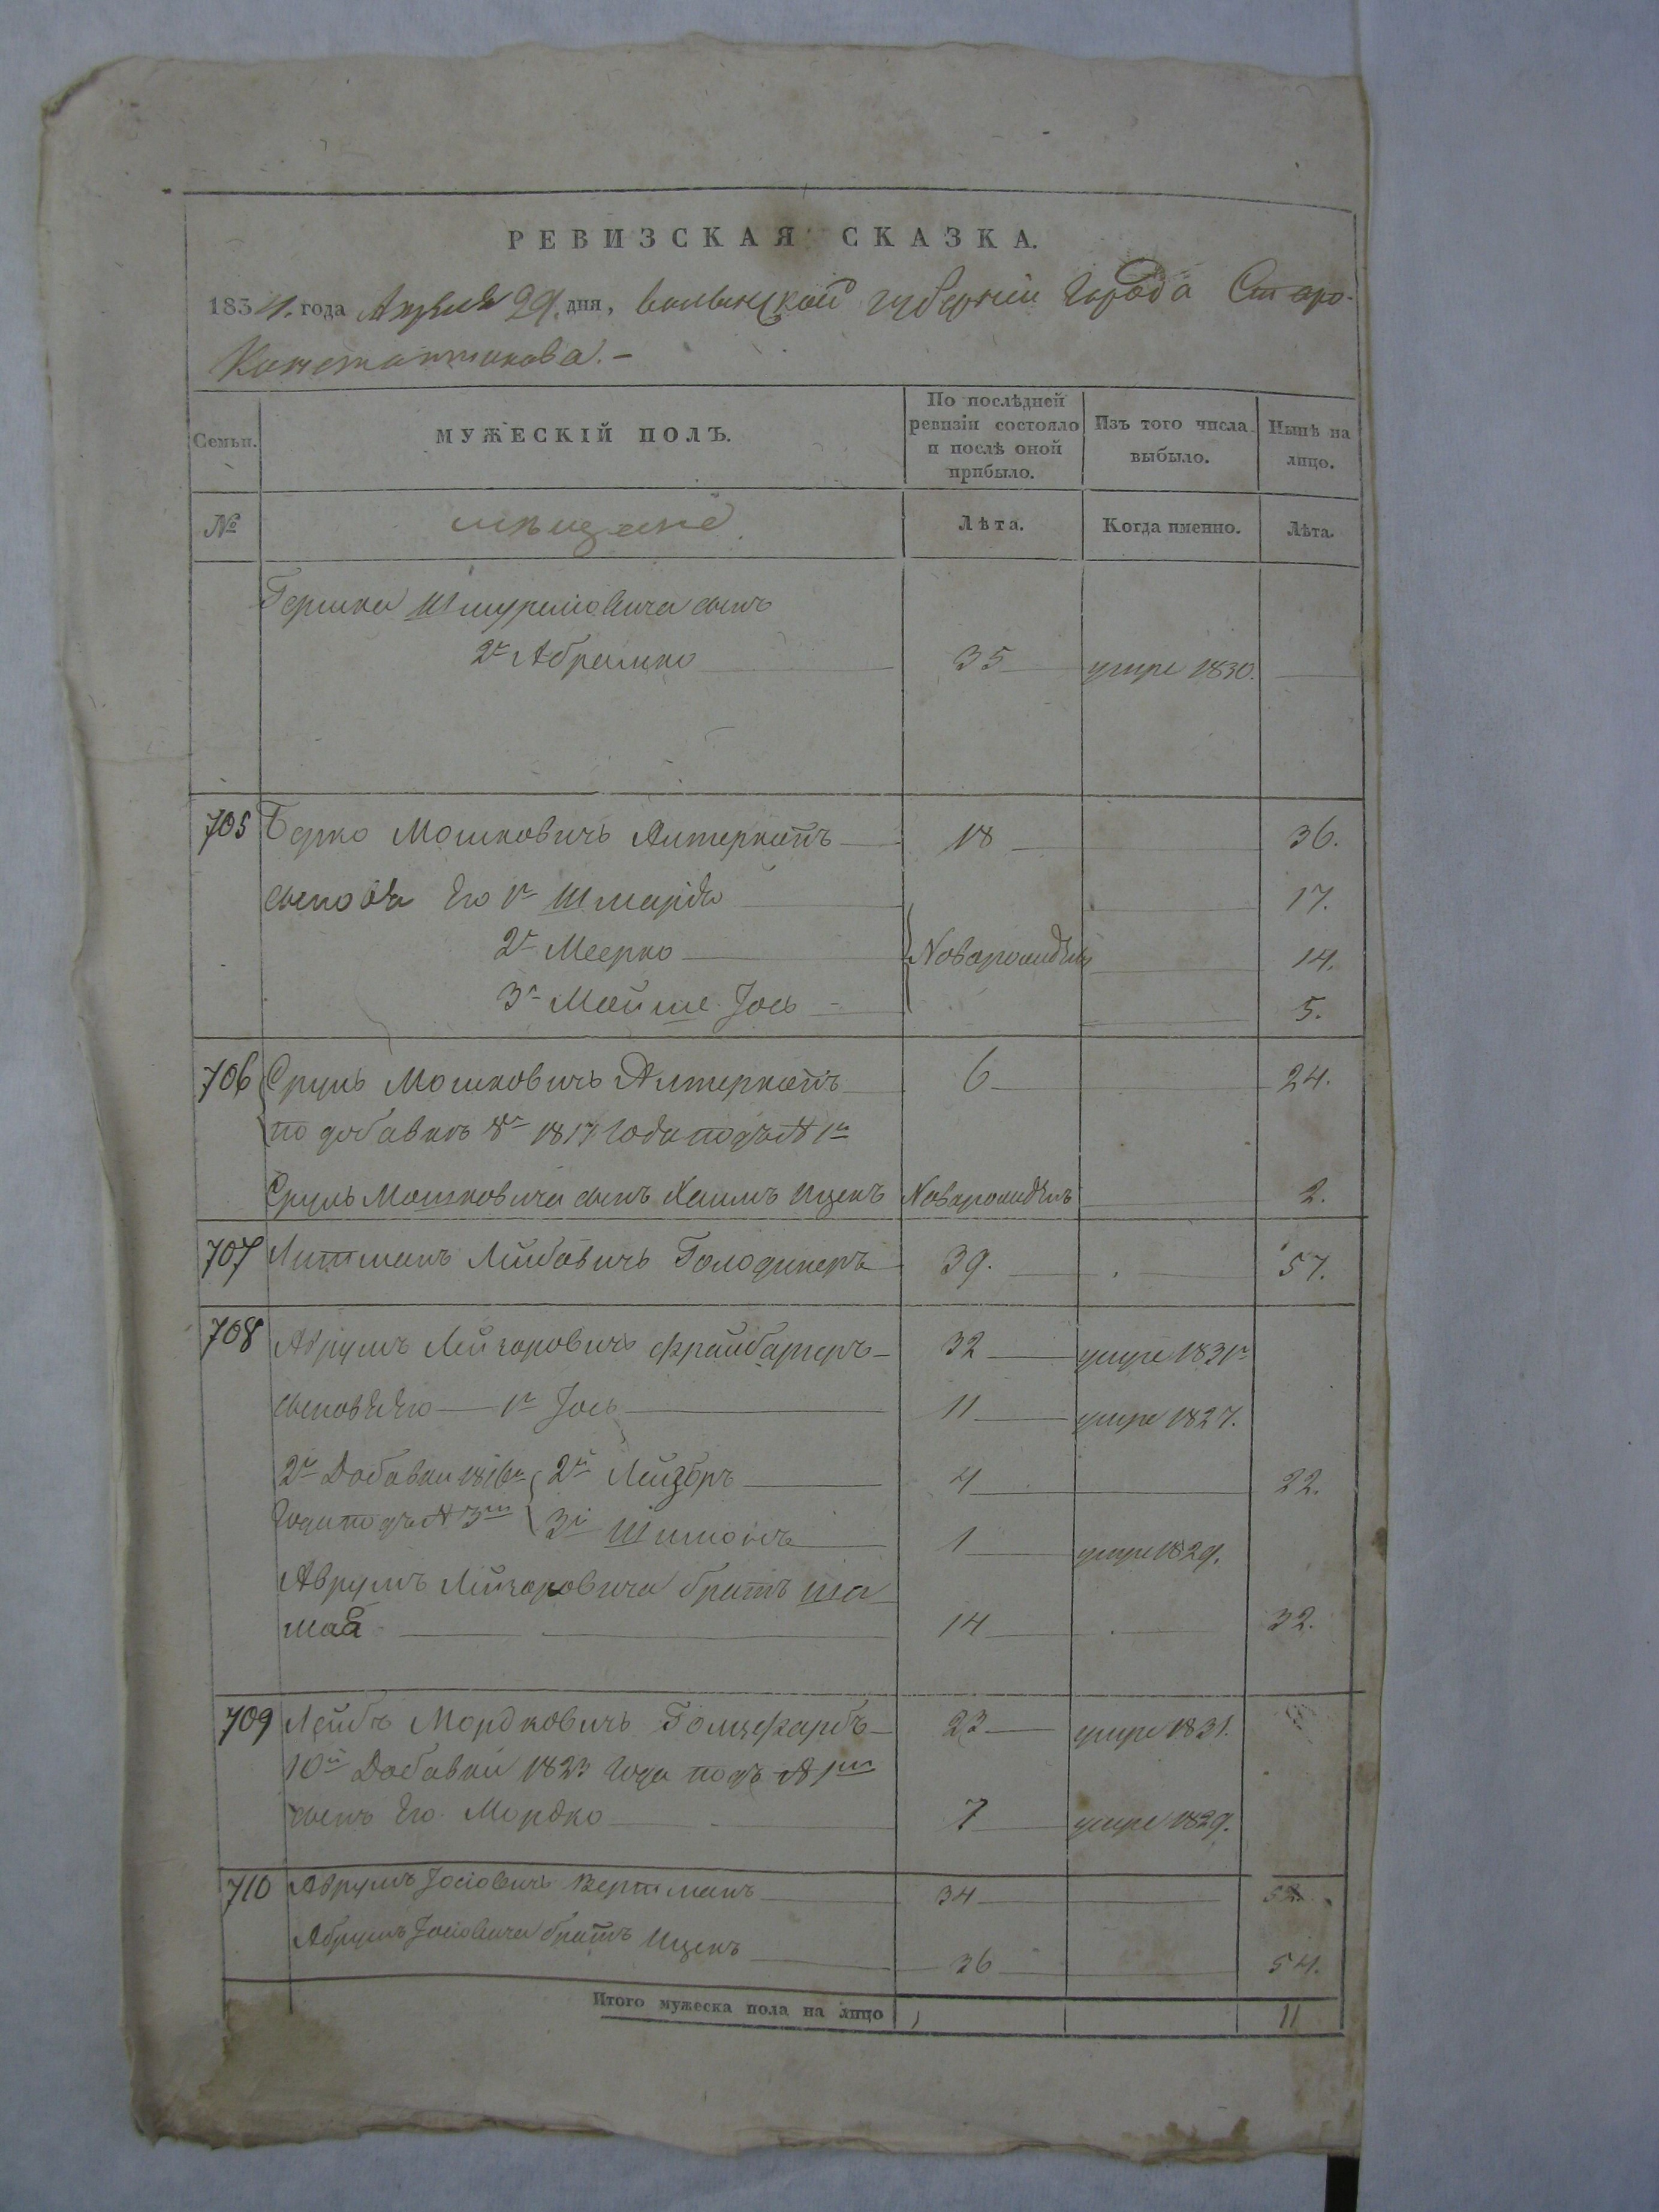 РЕВИЗСКАЯ СКАЗКА.
1834. года Апреля 29. дня, волынской губернии города Старо-
Константинова. –
Семьи. МУЖЕСКІЙ ПОЛЪ. По послѣдней ревизіи состояло и послѣ оной прибыло. Изъ того числа выбыло. Нынѣ на лицо.
№ мѣщане Лѣта. Когда именно. Лѣта.
Гершка сынъ
2й Абрамко 35 умре 1830.
705 Берко Мошковичъ 18 36.
сыновья Его 1й 17.
2й Меерко Новорожденъ 14.
3й Мойше Іось 5.
706 Сруль Мошковичъ 6 24.
по добавкѣ 8й 1817 года подъ № 1м
Сруль Мошковича сынъ Хаимъ Ицекъ Новорожденъ 2.
707 Литманъ Лейбовичъ 39. 57.
708 Аврумъ Лейзоровичъ 32 умре 1831г
сыновья Его 1й Іось 11 умре 1827.
2й Добавки 1816го 2й Лейзоръ 4 22.
года подъ № 3м 3й Шимонъ 1 умре 1829.
Аврумъ Лейзоровича братъ Ша
май 14 32.
709 Лейбъ Мордковичъ Голцфарбъ 23 умре 1831.
10й Добавки 1823 года подъ № 1м
сынъ Его Мордко 7 умре 1829.
710 Аврумъ Іосіовичъ Вертманъ 34 52.
Абрумъ Іосіовича братъ Ицекъ 36 54.
Итого мужеска пола на лицо 11